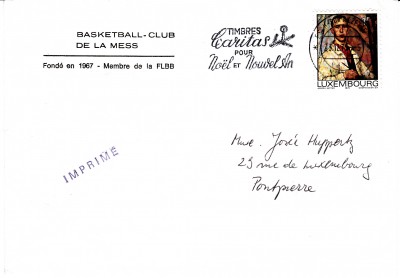 BASKETBALL-CLUB
DE LA MESS
Fondé en 1967 - Membre de la FLBB
TIMBRES
Caritas
POUR
Noël ET Nouvel An
LUXEMBOURG
IMPRIMÉ
Mme. Josée Huppertz
23 rue de Luxembourg
Pontpierre